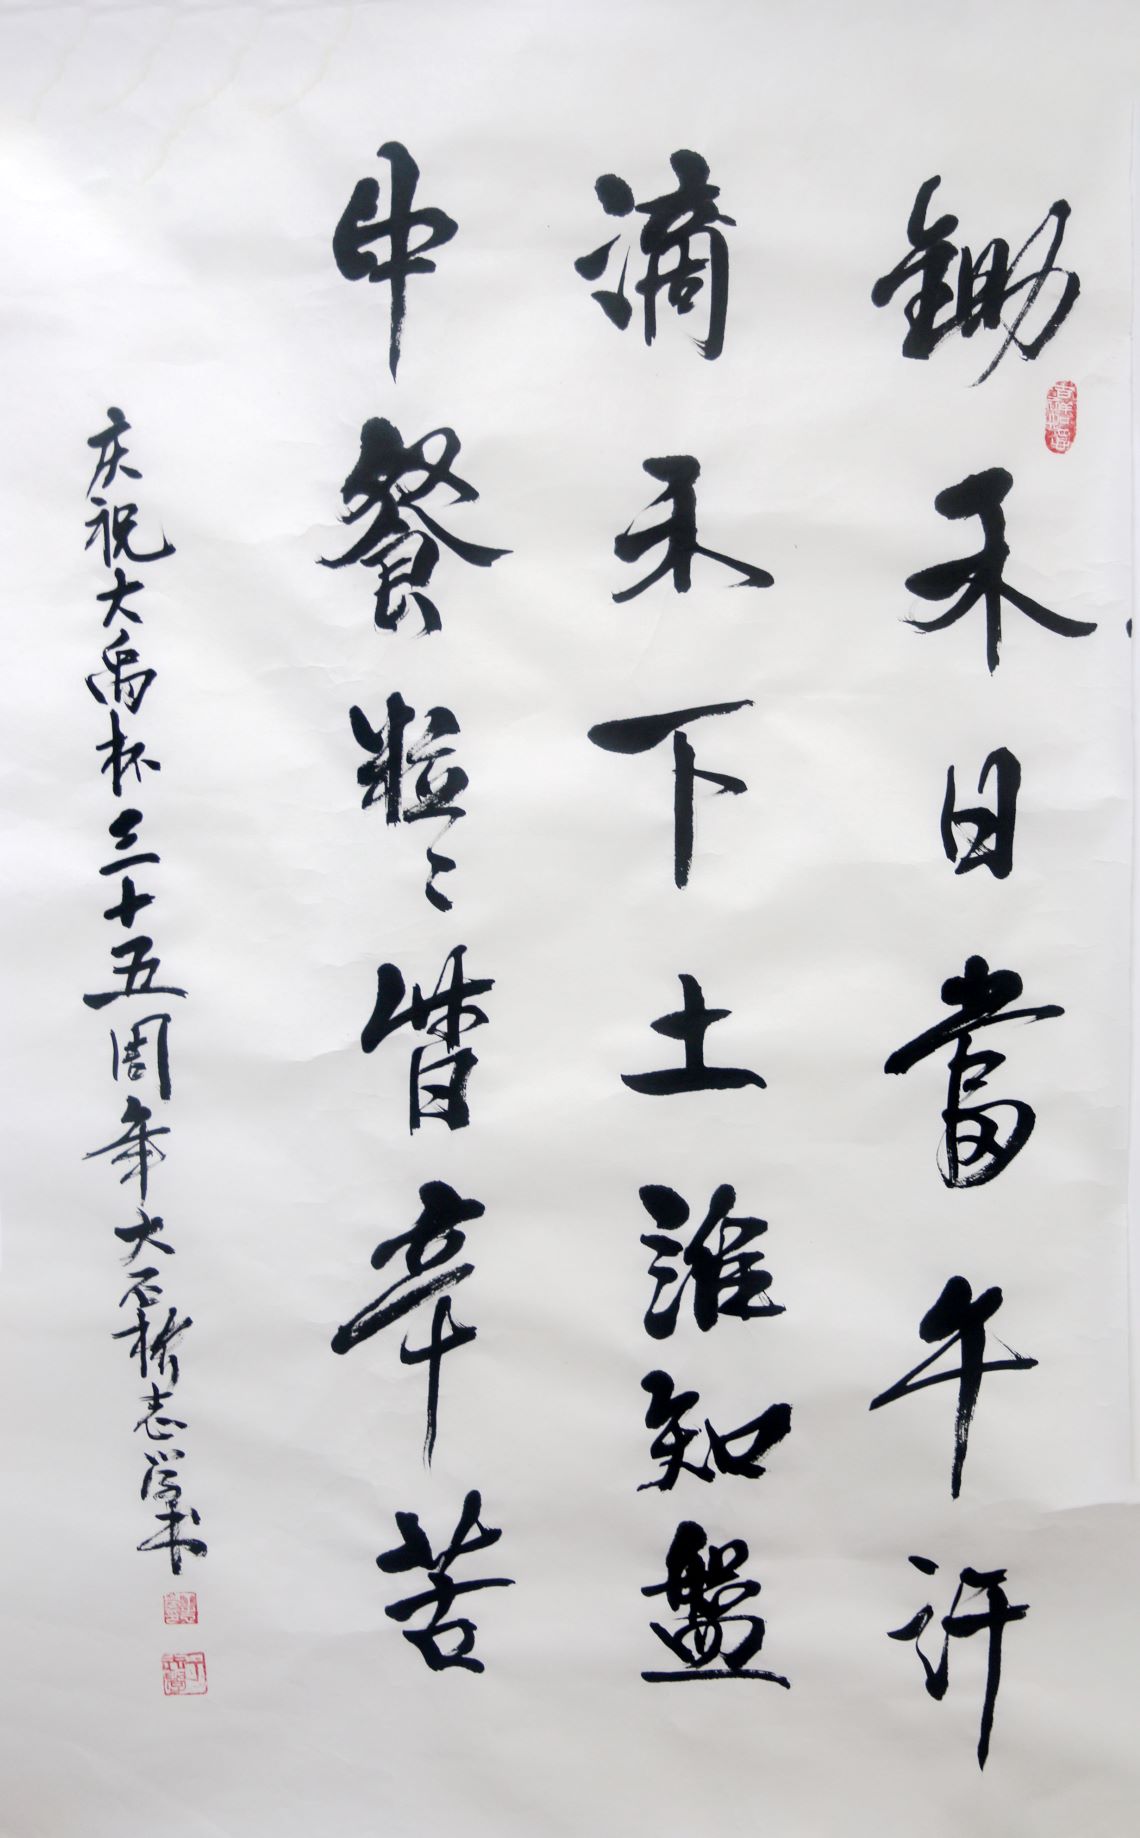 鋤禾日當午汗
滴禾下土誰知盤
中餐粒〻皆辛苦
庆祝大禹杯三十五周年大石桥志学书